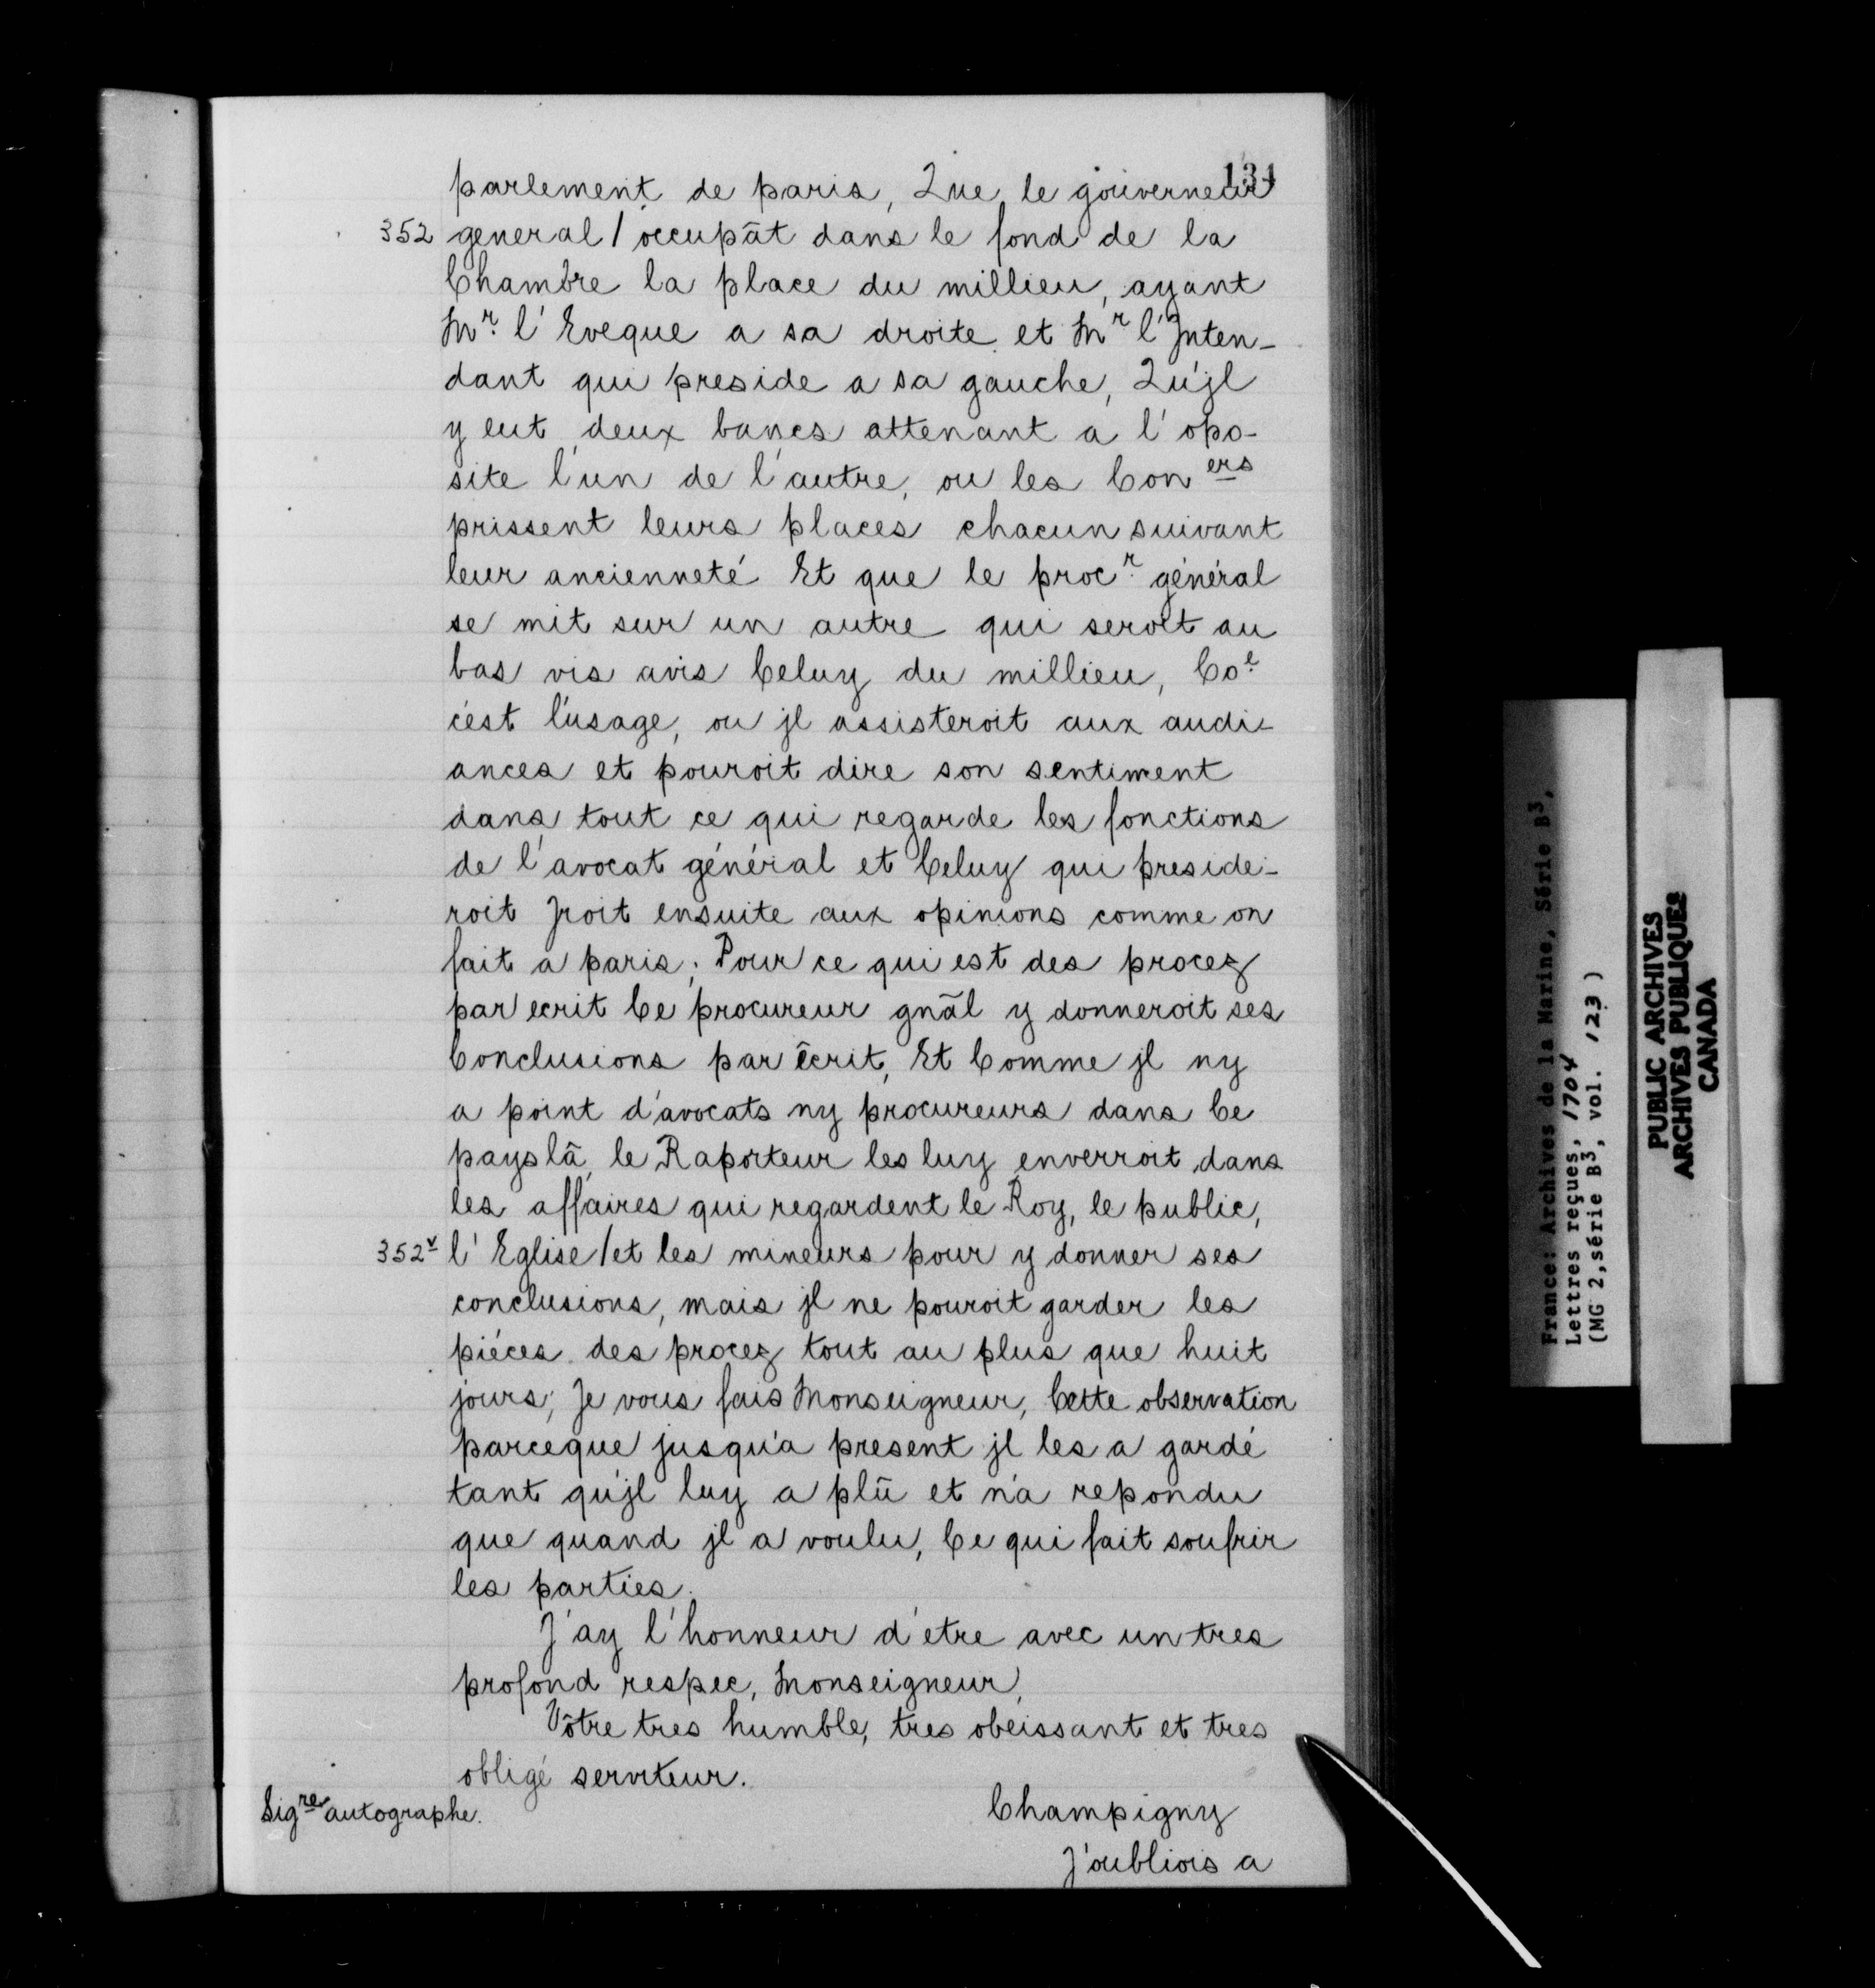 134
parlement de paris, Que le gouverneur
352 general / occupât dans le fond de la
Chambre la place du millieu, ayant
Mr. l'Eveque a sa droite et Mr l'Inten-
dant qui preside a sa gauche, Qu'jl
y eut deux bancs attenant a l'opo-
site l'un de l'autre, ou les Coners
prissent leurs places chacun suivant
leur ancienneté Et que le procr. général
se mit sur un autre qui seroit au
bas vis avis Celuy du millieu, Coe.
c'est l'usage, ou jl assisteroit aux audi-
ances et pouroit dire son sentiment
dans tout ce qui regarde les fonctions
de l'avocat général et Celuy qui preside-
roit Jroit ensuite aux opinions comme on
fait a paris; Pour ce qui est des procez
par ecrit Ce procureur gnãl y donneroit ses
Conclusions par êcrit, Et Comme jl ny
a point d'avocats ny procureurs dans Ce
pays lâ, le Raporteur les luy enverroit dans
les affaires qui regardent le Roy, le public,
352v l'Eglise / et les mineurs pour y donner ses
conclusions, mais jl ne pouroit garder les
piéces des procez tout au plus que huit
jours; Je vous fais Monseigneur, Cette observation
parceque jusqu'a present jl les a gardé
tant qu'jl luy a plû et n'a repondu
que quand jl a voulu, Ce qui fait soufrir
les parties.
J'ay l'honneur d'etre avec un tres
profond respec, Monseigneur,
Vôtre tres humble, tres obeissant et tres
obligé serviteur.
Sigre autographe.
Champigny
J'oubliois a
France: Archives de la Marine, Série B3,
Lettres reçues, 1704
(MG 2, série B3, vol. 123)
PUBLIC ARCHIVES
ARCHIVES PUBLIQUES
CANADA